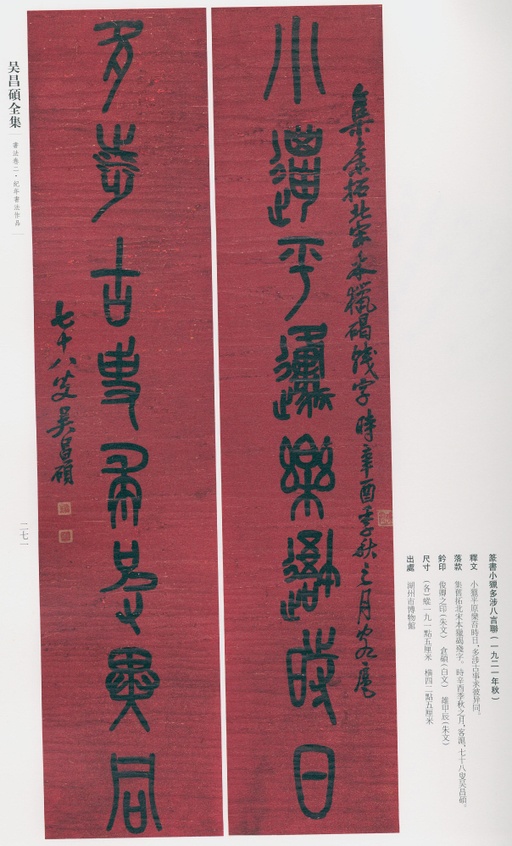 篆書小獵多涉八言聯(一九二一年秋)
釋文 小獵平原樂首時日,多涉古事求彼异同。
落款 集舊拓北宋本獵碣殘字,時辛酉季秋之月,客滬,七十八叟吳昌碩。
鈐印 俊卿之印(朱文) 倉碩(白文) 雄甲辰(朱文)
尺寸 (各)縱一九一點五厘米 橫四二點五厘米
出處 湖州市博物館
集舊拓北宋本獵碣殘字時辛酉季秋之月客扈
小邋平邍樂時日
多涉古事求彼異同
七十八叟吳昌碩
吴昌碩全集
書法卷二·紀年書法作品
二七一